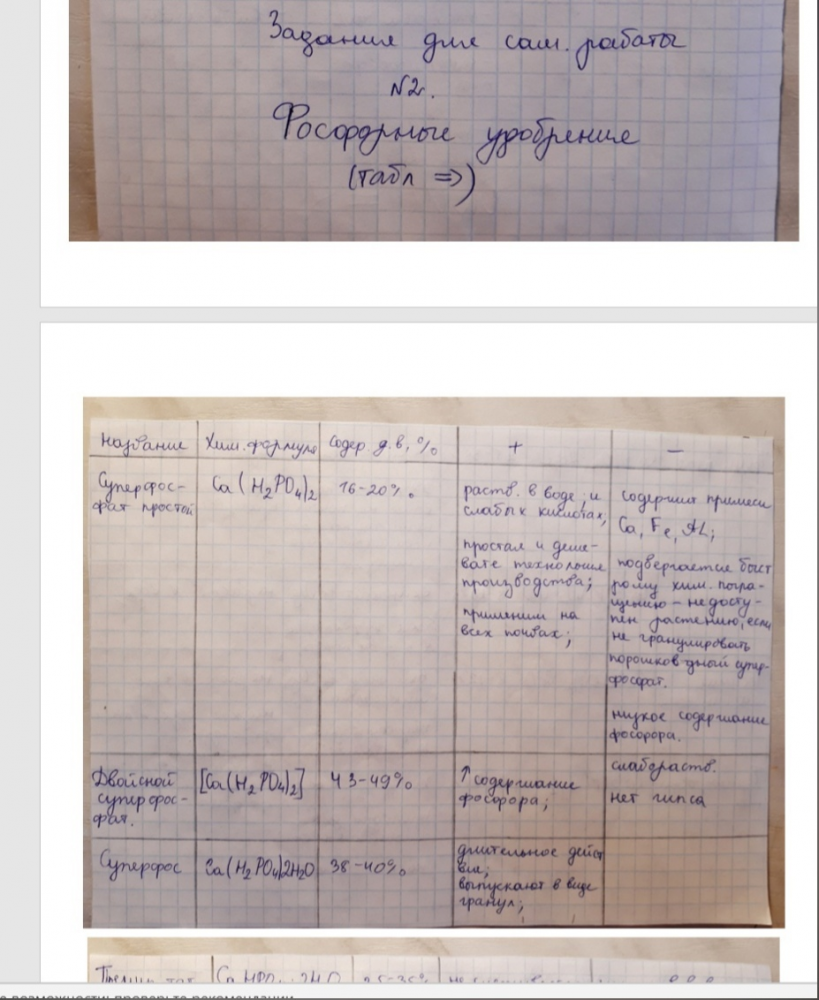 Задания для сам. работы
№2.
Фосфорные удобрение
(табл ⇒)
Название Хим. формула Содер. д.в, % + −
Суперфос-
фат простой
Ca(H₂PO₄)₂
16-20%.
раств. в воде, и
слабых кислотах,
простая и деше-
вая технология
производства;
применим на
всех почвах;
содержит примеси
Ca, Fe, AL;
подвергается быст
рому хим. погла-
щению - недосту-
пен растению, если
не гранулировать
порошков дный супер-
фосфат.
низкое содержание
фосфора.
Двойной
суперфос-
фат.
[Ca(H₂PO₄)₂]
43-49%
↑ содержание
фосфора;
слабораств.
нет гипса
Суперфос
Ca(H₂PO₄)2H₂O
38-40%
длительное дейст
вие;
выпускают в виде
гранул;